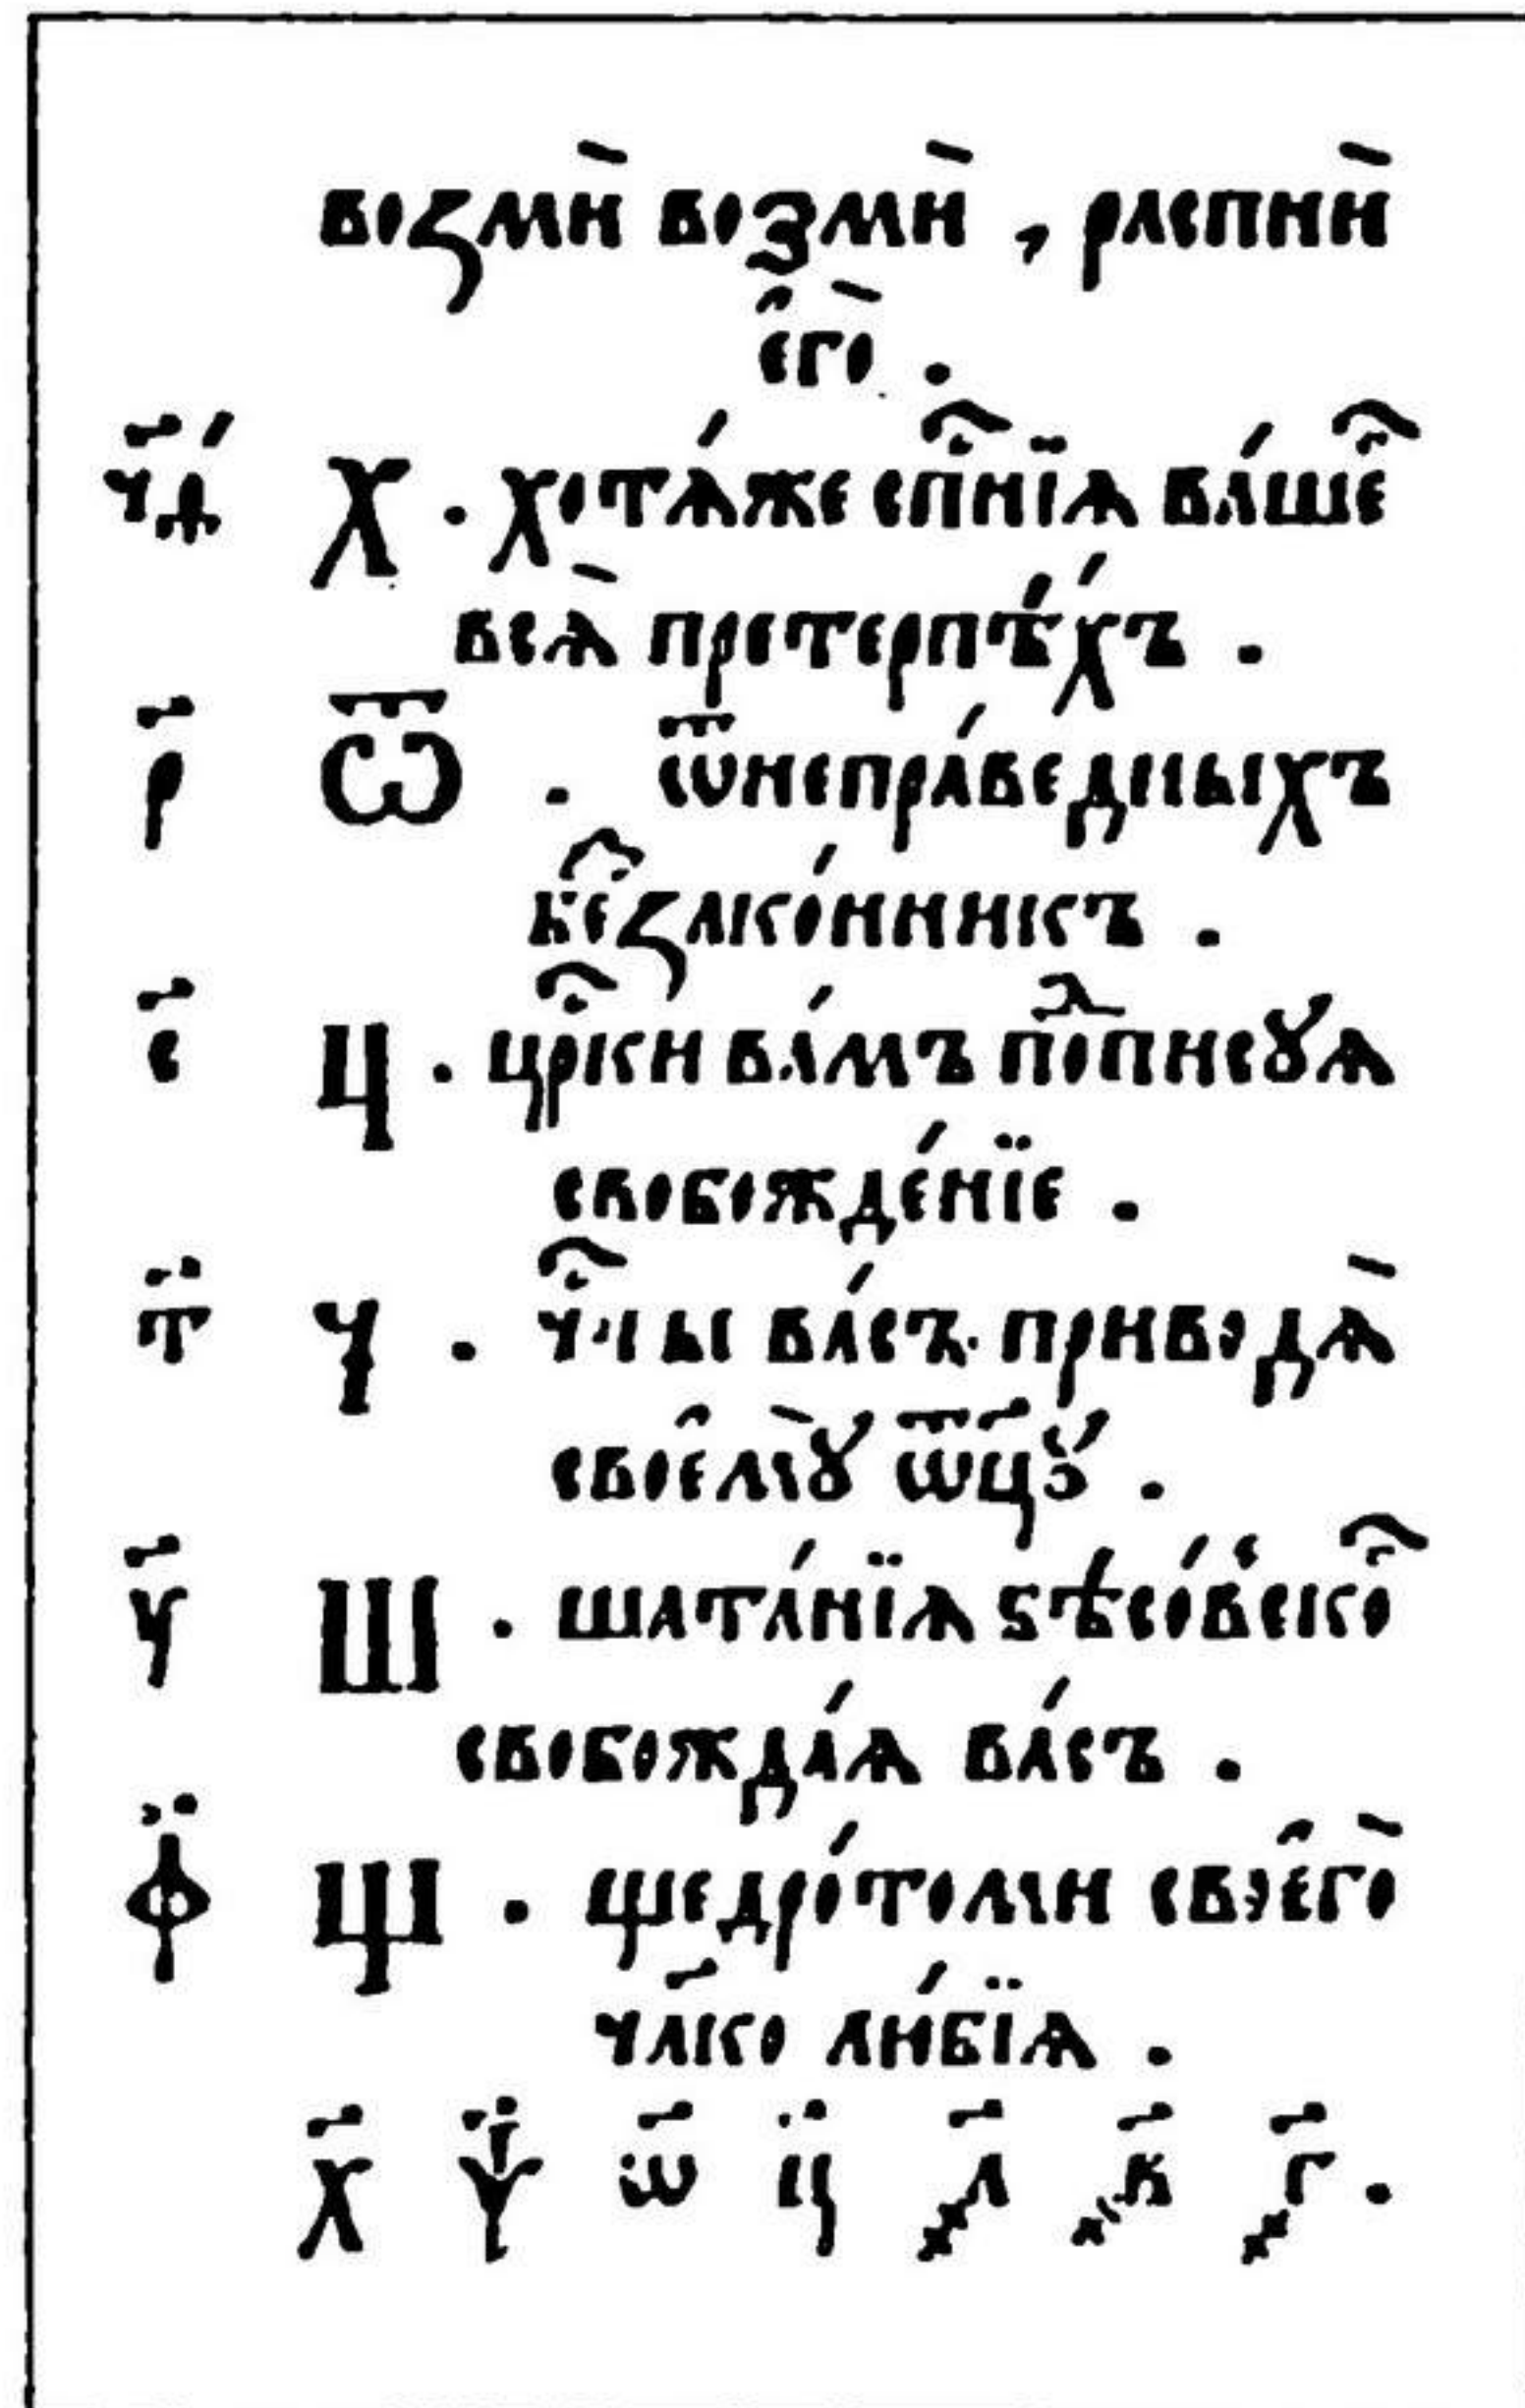 возмѝ возмѝ , распнѝ
є҆го̀ .
ч҃д х . хотѧ́же сп҃нїѧ ва́шегѡ
всѧ̀ претерпѣ́хъ .
р҃ ѿ . ѿнепра́ведныхъ
беззако́нникъ .
с҃ ц . цр҃ки ва́мъ пописꙋѧ
свобожде́нїе .
т҃ ч . чс҃ты ва́съ приводѧ̀
своемꙋ̀ ѿцꙋ̀ .
у҃ ш . шата́нїѧ бѣсо́вско
свобожда́ѧ ва́съ .
ф҃ щ . щедро́томи своего̀
чл҃ко лю́бїѧ .
х҃ ѱ҃ ѿ ц҃ ҂а҃ ҂в҃ ҂г҃ .